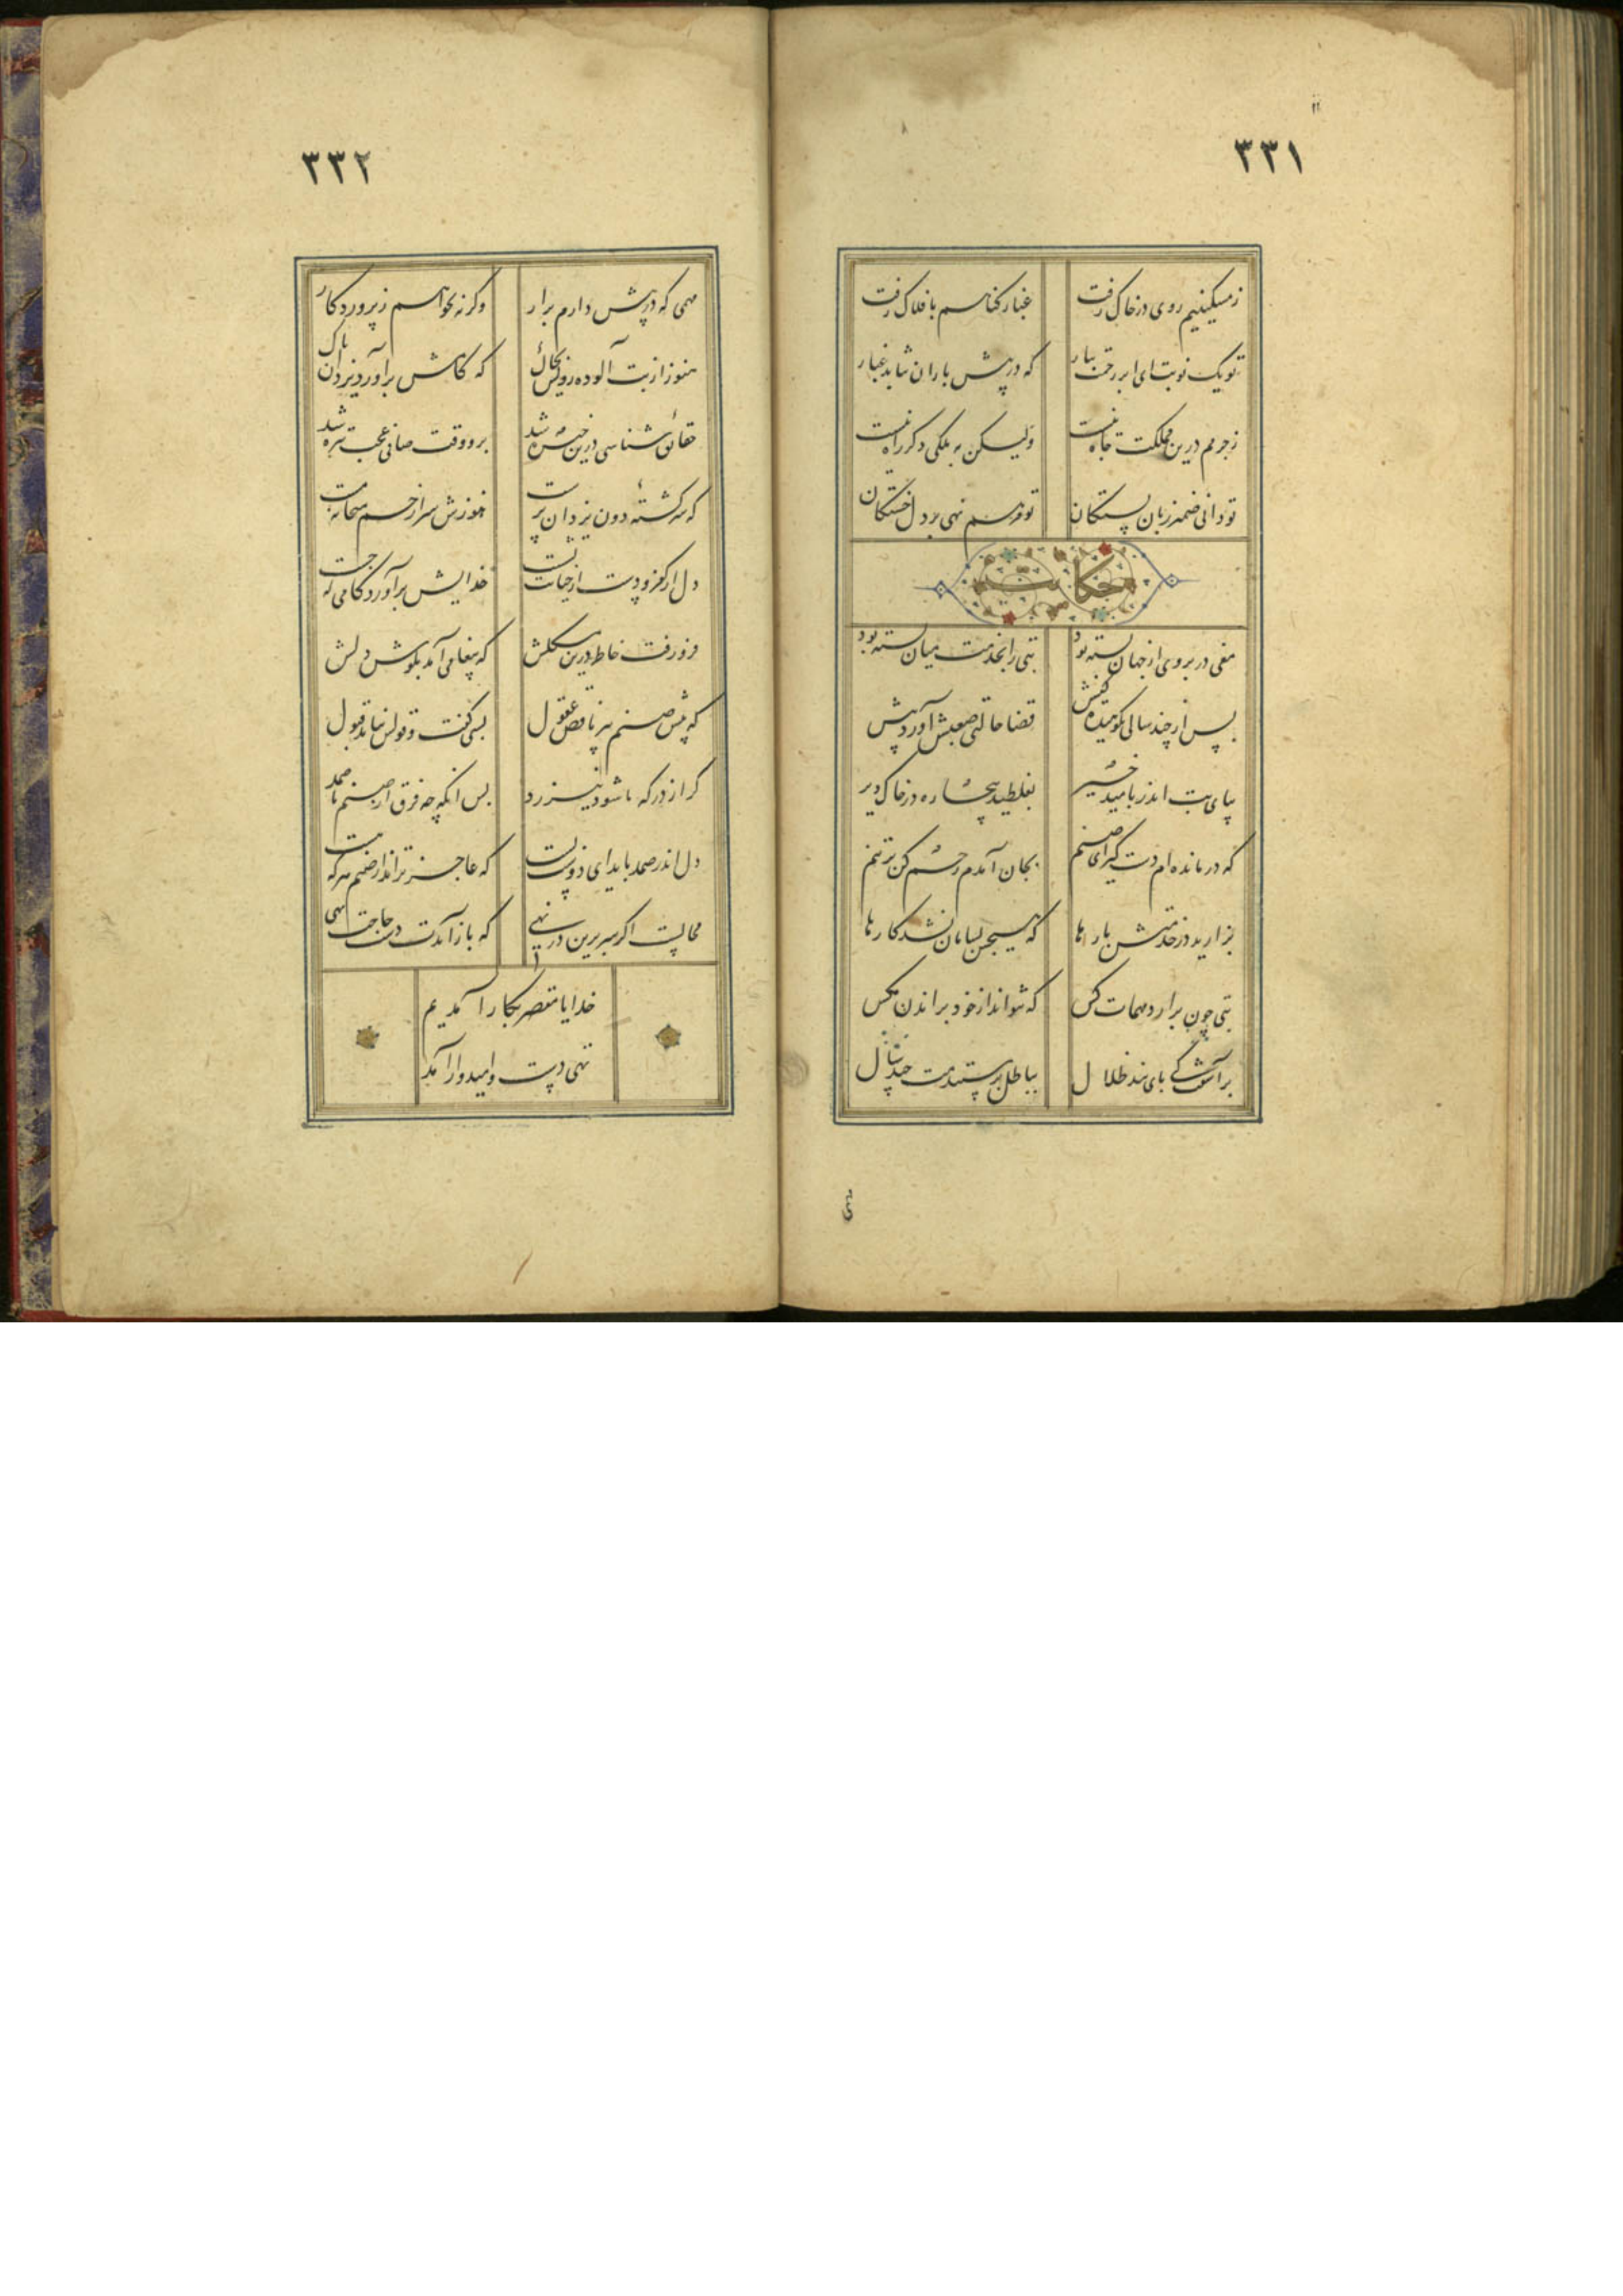 ٣٣١
ز مسکینیم روی در خاک رفت
غبار گناهم بافلاک رفت
تو یک نوبت ای ابر رحمت ببار
که در پیش باران نپاید غبار
ز جرمم درین مملکت جاه نیست
ولیکن به ملکی دکر راه نیست
تو دانی ضمیر زبان بستکان
تو مرهم نهی بر دل خستکان
حکایت
مغی در بروی از جهان بسته بود
بتی را بخدمت میان بسته بود
پس از چند سال نکوهیده کیش
قضا حالتی صعبش آورد پیش
بپای بت اندر بامید خیر
بغلطید بیچاره در خاک دیر
که درمانده ام دست کیر ای صنم
بجان آمدم رحم کن بر تنم
بزارید در خدمتش بارها
که هیچش بسامان نشد کارها
بتی چون برارد مهمات کس
که نتواند از خود براندن مکس
برآشفت کای پای بند ظلال
بباطل پرستیدمت چند سال
٣٣٢
مهمی که در پیش دارم برار
وکرنه بخواهم ز پروردکار
هنوز از بت آلوده رویش بخاک
که کامش برآورد یزدان پاک
حقائق شناسی درین خیره شد
برو وقت صافی عجب تیره شد
که سرکشته دون یزدان پرست
هنوزش سر از خم بتخانه مست
دل از کفر و دست از خیانت نشست
خدایش برآورد کامی که جست
فرو رفت خاطر درین مشکلش
که پیغامی آمد بکوش دلش
که پیش صنم پیر ناقص عقول
بسی کفت و قولش نیامد قبول
کر از درکه ما شود نیز رد
پس آنکه چه فرق از صنم تا صمد
دل اندر صمد باید ای دوست بست
که عاجزتراند از صنم هر که هست
محالست اکر سر برین در نهی
که باز آیدت دست حاجت تهی
خدایا مقصر بکار آمدیم
تهی دست و امیدوار آمدیم